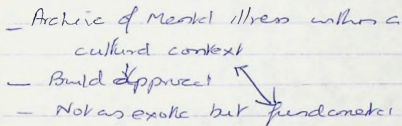 - Archive of Mental illness within a
cultural context
- Build approval
- Not as exotic but fundamental